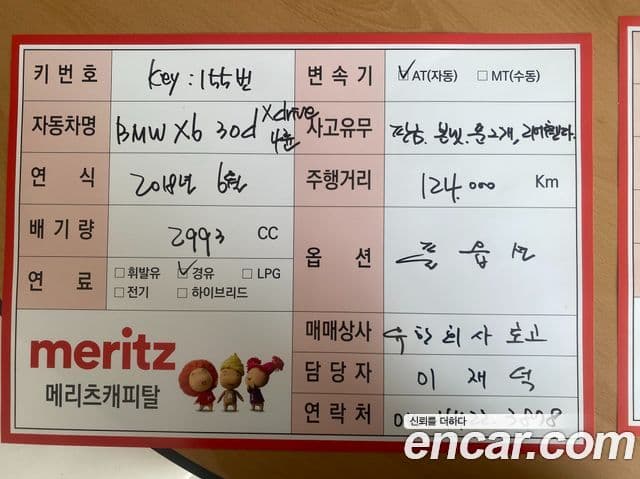 키번호 key : 155번 변속기 ✓AT(자동) □MT(수동)
자동차명 BMW X6 30d xdrive 4륜 사고유무 판금. 본넷. 문2개,
연식 2018년 6월 주행거리 124,000 Km
배기량 2993 CC 옵션 풀 옵션
연료 □휘발유 ✓경유 □LPG
□전기 □하이브리드
meritz
메리츠캐피탈
매매상사 유한회사 토고
담당자 이재덕
연락처
신뢰를 더하다
encar.com